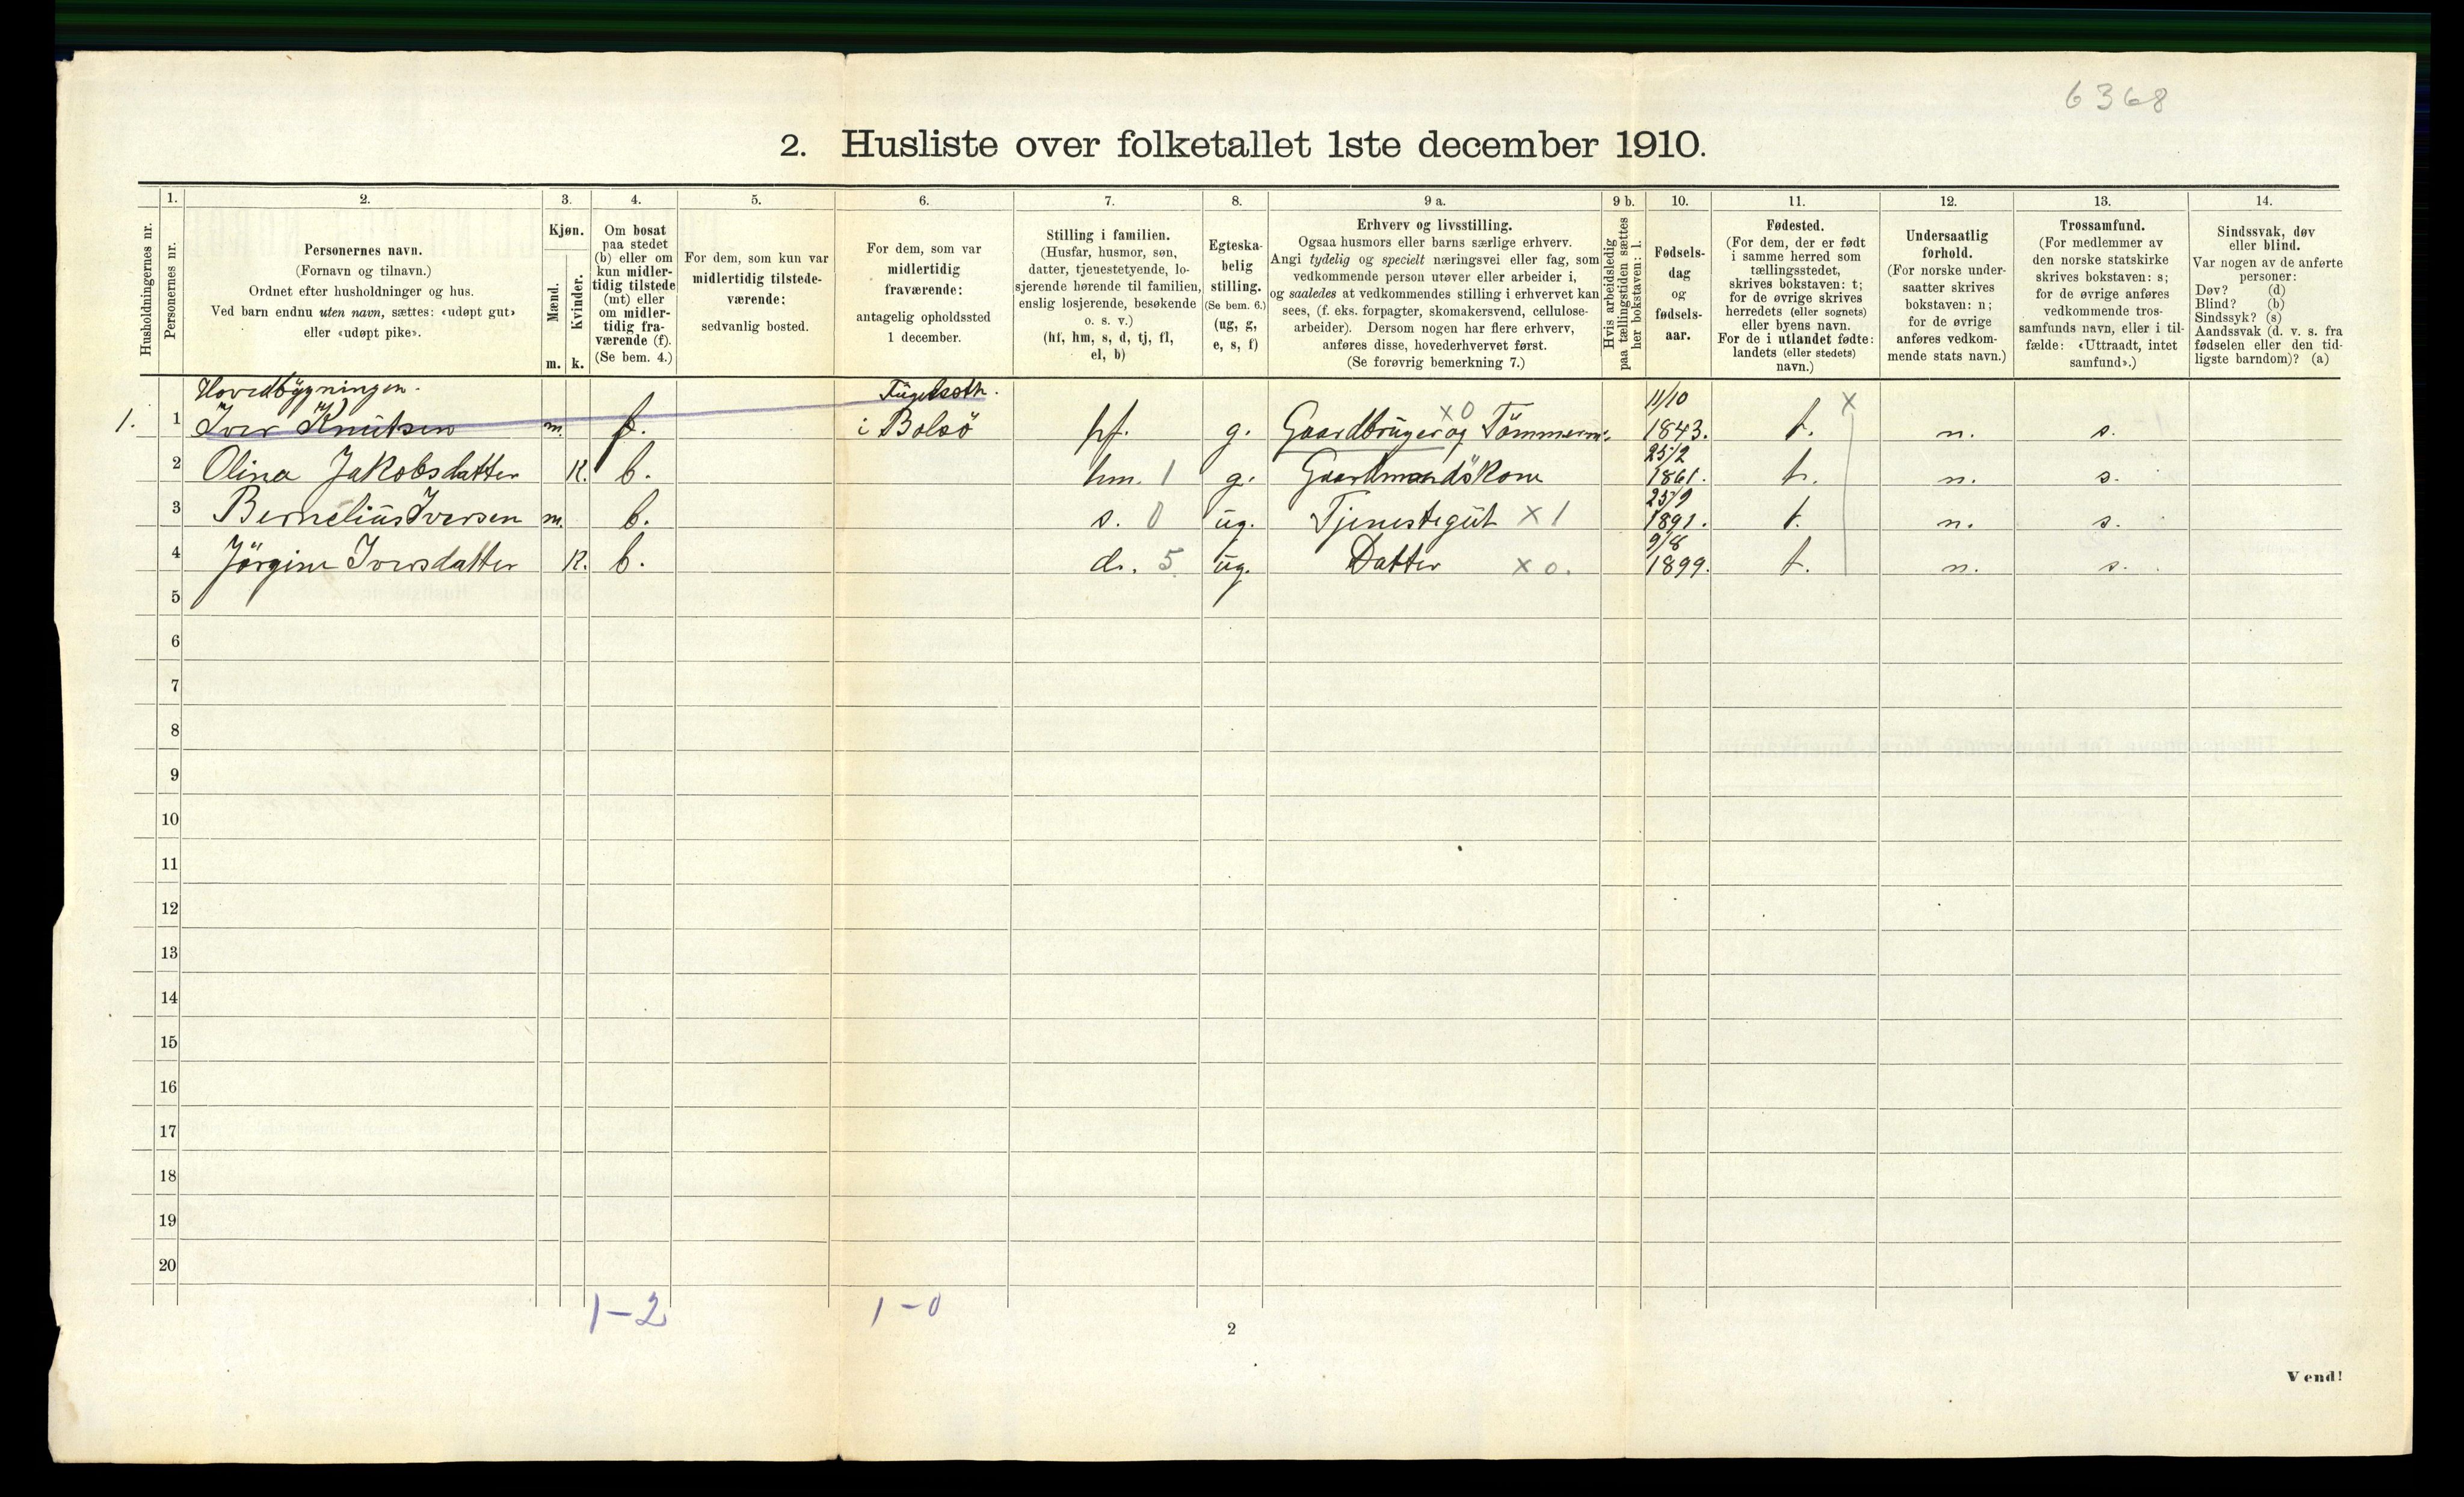 6368
2. Husliste over folketallet 1ste december 1910.
Husholdningernes nr.
1.
Personernes nr.
2.
Personernes navn.
(Fornavn og tilnavn.)
Ordnet efter husholdninger og hus.
Ved barn endnu uten navn, sættes: «udøpt gut»
eller «udøpt pike».
3.
Kjøn.
Mænd.
Kvinder.
m. k.
4.
Om bosat
paa stedet
(b) eller om
kun midler-
tidig tilstede
(mt) eller
om midler-
tidig fra-
værende (f).
(Se bem. 4.)
5.
For dem, som kun var
midlertidig tilstede-
værende:
sedvanlig bosted.
6.
For dem, som var
midlertidig
fraværende:
antagelig opholdssted
1 december.
7.
Stilling i familien.
(Husfar, husmor, søn,
datter, tjenestetyende, lo-
sjerende hørende til familien,
enslig losjerende, besøkende
o. s. v.)
(hf, hm, s, d, tj, fl,
el, b)
8.
Egteska-
belig
stilling.
(Se bem. 6.)
(ug, g,
e, s, f)
9 a.
Erhverv og livsstilling.
Ogsaa husmors eller barns særlige erhverv.
Angi tydelig og specielt næringsvei eller fag, som
vedkommende person utøver eller arbeider i,
og saaledes at vedkommendes stilling i erhvervet kan
sees, (f. eks. forpagter, skomakersvend, cellulose-
arbeider). Dersom nogen har flere erhverv,
anføres disse, hovederhvervet først.
(Se forøvrig bemerkning 7.)
9 b.
Hvis arbeidsledig
paa tællingstiden sættes
her bokstaven: l.
10.
Fødsels-
dag
og
fødsels-
aar.
11.
Fødested.
(For dem, der er født
i samme herred som
tællingsstedet,
skrives bokstaven: t;
for de øvrige skrives
herredets (eller sognets)
eller byens navn.
For de i utlandet fødte:
landets (eller stedets)
navn.)
12.
Undersaatlig
forhold.
(For norske under-
saatter skrives
bokstaven: n;
for de øvrige
anføres vedkom-
mende stats navn.)
13.
Trossamfund.
(For medlemmer av
den norske statskirke
skrives bokstaven: s;
for de øvrige anføres
vedkommende tros-
samfunds navn, eller i til-
fælde: «Uttraadt, intet
samfund».)
14.
Sindssvak, døv
eller blind.
Var nogen av de anførte
personer:
Døv? (d)
Blind? (b)
Sindssyk? (s)
Aandssvak (d. v. s. fra
fødselen eller den tid-
ligste barndom)? (a)
Hovedbygningen.
11/10 x
1. 1 Iver Knutsen m. f. i Bolsö hf. g. Gaardbruger og Tömmerm: x0 1843. t. n. s.
25/2
2 Olina Jakobsdatter K. b. hm. 1 g. Gaardmandskone 1861. t. n. s.
25/9
3 Bernelius Iversen m. b. s. 0 ug. Tjenestegut x 1 1891. t. n. s.
9/8
4 Jörgine Iversdatter K. b. d. 5 ug. Datter x 0. 1899. t. n. s.
5
6
7
8
9
10
11
12
13
14
15
16
17
18
19
20
1-2 1-0
2
Vend!